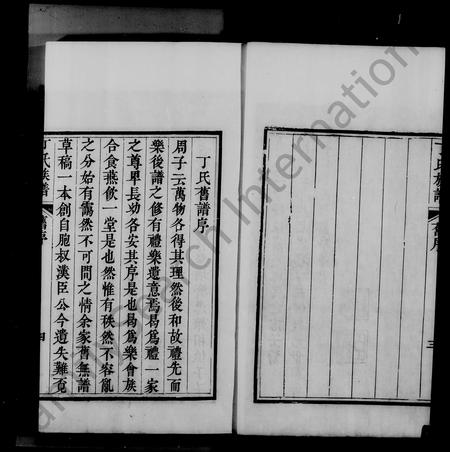 丁氏族譜
舊序
三
丁氏舊譜序
周子云萬物各得其理然後和故禮先而
樂後譜之修有禮樂遺意焉曷爲禮一家
之尊卑長幼各安其序是也曷爲樂會族
合食燕飲一堂是也然惟有秩然不容亂
之分始有靄然不可間之情余家舊無譜
草稿一本創自胞叔漢臣公今遺失難覓
丁氏族譜
舊序
四